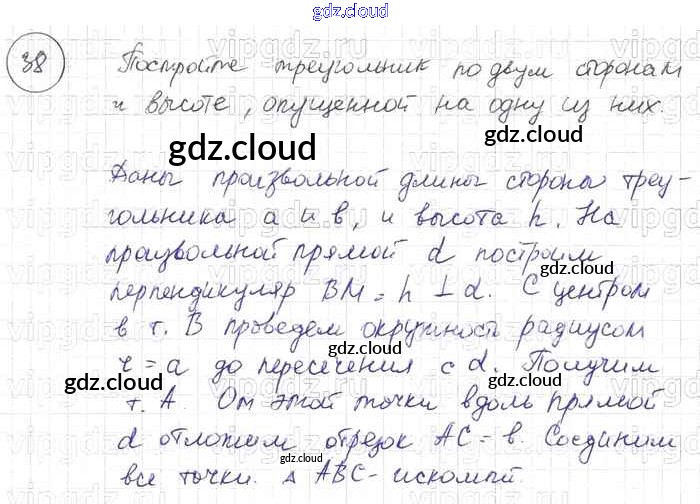 gdz.cloud
38 Постройте треугольник по двум сторонам
и высоте, опущенной на одну из них.
gdz.cloud
gdz.cloud
Даны произвольной длины стороны треу-
гольника a и в, и высота h. На
произвольной прямой d построим
gdz.cloud
перпендикуляр BM = h ⊥ d. С центром
в т. В проведем окружность радиусом
gdz.cloud
r = a до пересечения с d. Получим
gdz.cloud
gdz.cloud
т. А. От этой точки вдоль прямой
d отложим отрезок АС = в. Соединим
gdz.cloud
все точки. △ АВС - искомый.